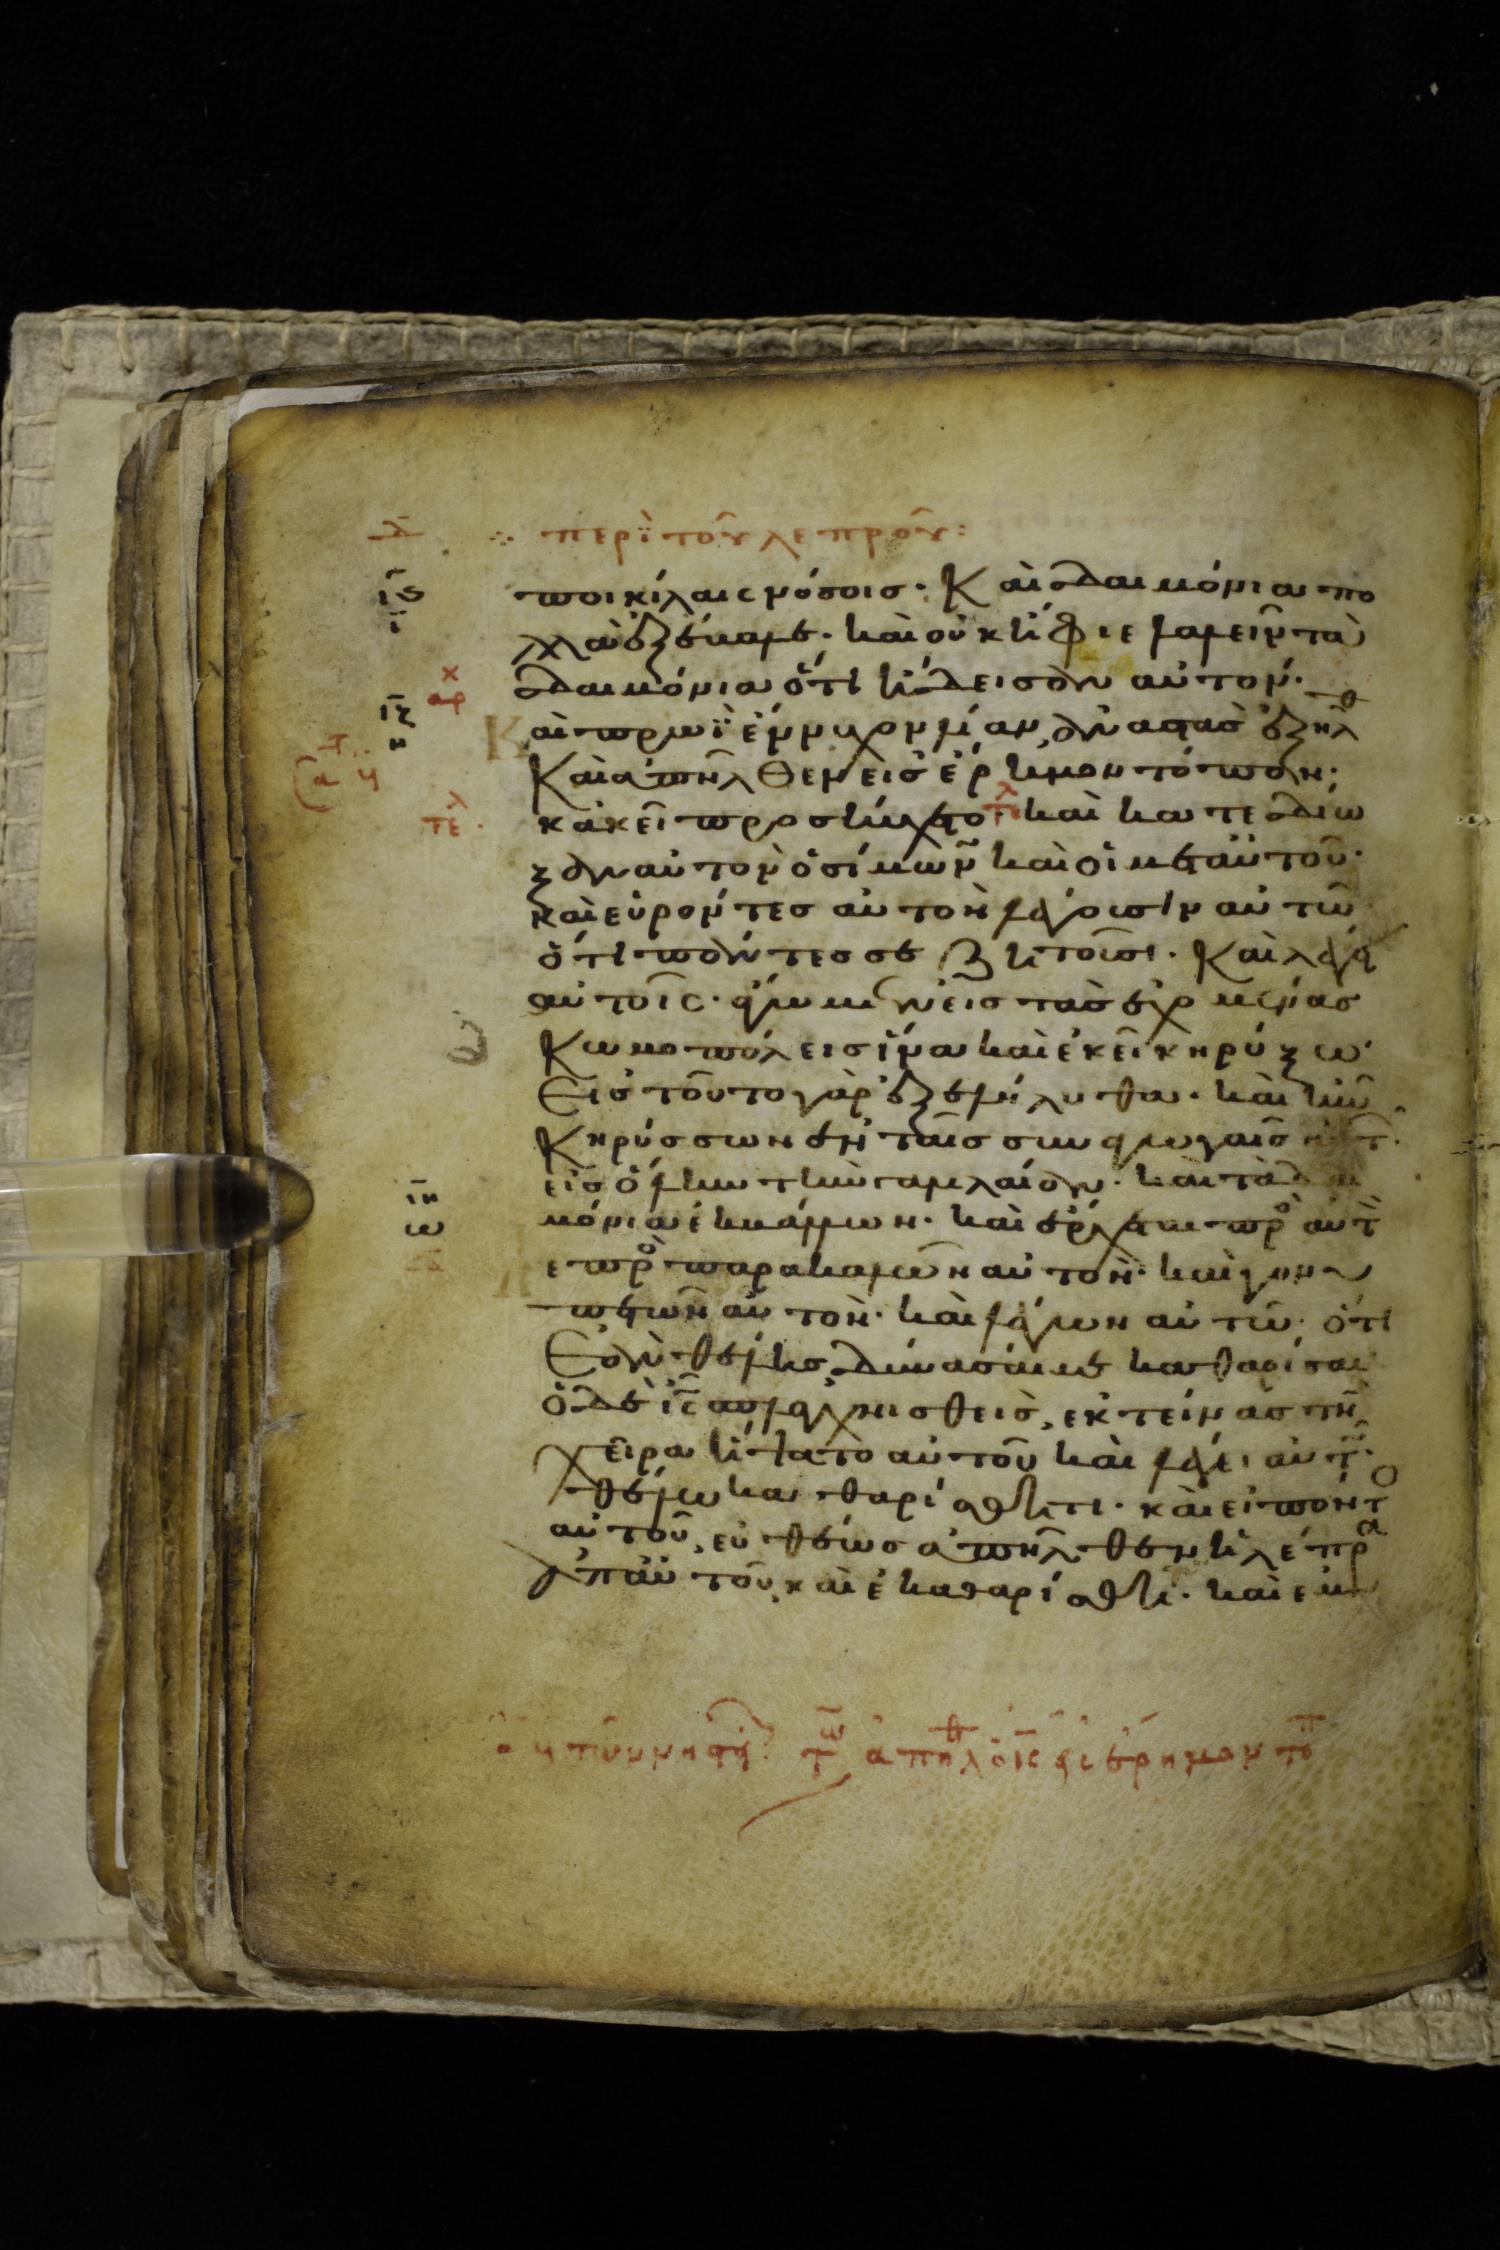 ∴ περὶ τοῦ λεπροῦ:
ιϛ
ποικίλαις νόσοις· Καὶ δαιμόνια πο
ι
λλὰ ἐξέβαλε· καὶ οὐκ ἤφιε λαλεῖν τὰ
δαιμόνια ὅτι ᾔδεισαν αὐτόν·
αρχ
ιζ
αὶ πρωῒ ἔννυχον λίαν, ἀναστὰς ἐξῆλθ
η
Καὶ ἀπῆλθεν εἰς ἔρημον τόπον·
κἀκεῖ προσηύχετο· τελ καὶ κατεδίω
τελ
ξαν αὐτὸν ὁ σίμων καὶ οἱ μετ αὐτοῦ·
καὶ εὑρόντες αὐτὸν λέγουσιν αὐτῶ
ὅτι πάντες σε ζητοῦσι· Καὶ λέγει
αὐτοῖς· ἄγωμεν εἰς τὰς ἐχομένας
Κωμοπόλεις ἵνα καὶ ἐκεῖ κηρύξω·
Εἰς τοῦτο γὰρ ἐξελήλυθα· καὶ ἦν
Κηρύσσων ἐν ταῖς συναγωγαῖς
εἰς ὅλην τὴν γαλιλαίαν· καὶ τὰ δαι
ιη
μόνια ἐκβάλλων· καὶ ἔρχεται πρὸ αὐτ
ω
λεπρὸ παρακαλῶν αὐτὸν· καὶ γονυ
πετῶν αὐτὸν· καὶ λέγων αὐτῶ· ὅτι
Ἐὰν θέλης, δύνασαί με καθαρίσαι
ὁ δὲ ις σπλαγχνισθεὶς, ἐκτείνας τὴν
χεῖρα ἥψατο αὐτοῦ καὶ λέγει αὐτῶ·
θέλω καθαρίσθητι· καὶ εἰπόντο
αὐτοῦ, εὐθέως ἀπῆλθεν ἡ λέπρα
ἀπ αὐτοῦ, καὶ ἐκαθαρίσθη· καὶ ἐμ
τῶ ἀπῆλθ ὁ ις εἰς ἔρημον το